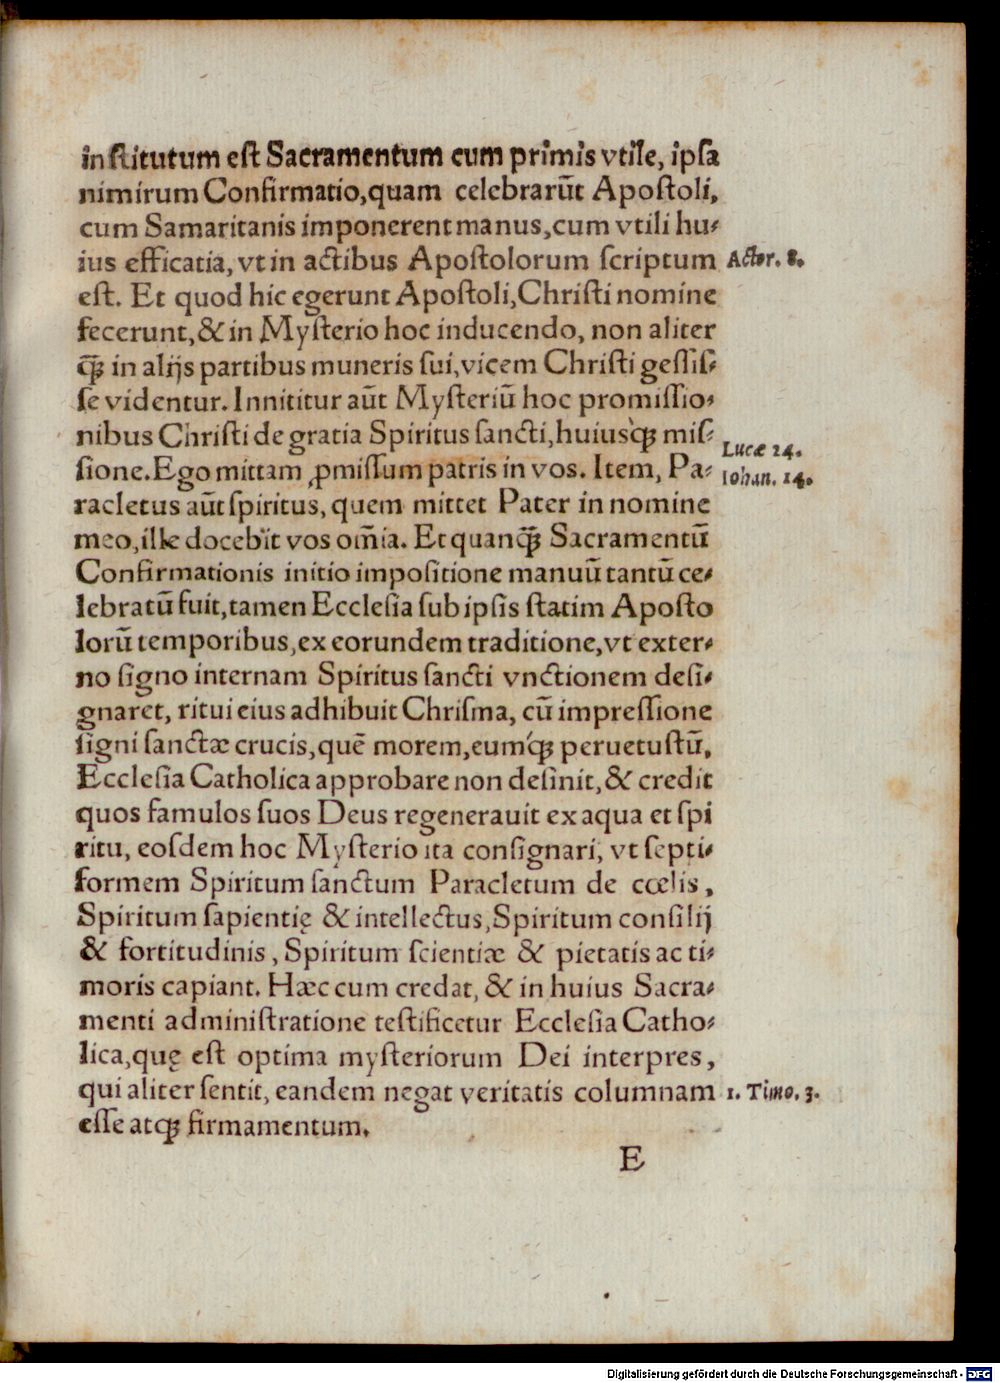 inſtitutum eſt Sacramentum cum primis vtile, ipſa
nimirum Confirmatio, quam celebrarūt Apoſtoli,
cum Samaritanis imponerent manus, cum vtili hu⸗
ius efficatia, vt in actibus Apoſtolorum ſcriptum
Actor. 8.
eſt. Et quod hic egerunt Apoſtoli, Chriſti nomine
fecerunt, & in Myſterio hoc inducendo, non aliter
q̃ꝫ in alijs partibus muneris ſui, vicem Chriſti geſſiſ⸗
ſe videntur. Innititur aūt Myſteriū hoc promiſſio⸗
nibus Chriſti de gratia Spiritus ſancti, huiusq́ꝫ miſ⸗
Lucæ 24.
ſione. Ego mittam ꝓmiſſum patris in vos. Item, Pa⸗
Iohan. 14.
racletus aūt ſpiritus, quem mittet Pater in nomine
meo, ille docebit vos om̄ia. Et quanq̃ꝫ Sacramentū
Confirmationis initio impoſitione manuū tantū ce⸗
lebratū fuit, tamen Eccleſia ſub ipſis ſtatim Apoſto
lorū temporibus, ex eorundem traditione, vt exter⸗
no ſigno internam Spiritus ſancti vnctionem deſi⸗
gnaret, ritui eius adhibuit Chriſma, cū impreſſione
ſigni ſanctæ crucis, quē morem, eumq́ꝫ peruetuſtū,
Eccleſia Catholica approbare non deſinit, & credit
quos famulos ſuos Deus regenerauit ex aqua et ſpi
ritu, eoſdem hoc Myſterio ita conſignari, vt ſepti⸗
formem Spiritum ſanctum Paracletum de cœlis,
Spiritum ſapientię & intellectus, Spiritum conſilij
& fortitudinis, Spiritum ſcientiæ & pietatis ac ti⸗
moris capiant. Hæc cum credat, & in huius Sacra⸗
menti adminiſtratione teſtificetur Eccleſia Catho⸗
lica, quę eſt optima myſteriorum Dei interpres,
qui aliter ſentit, eandem negat veritatis columnam
1. Timo. 3.
eſſe atqꝫ firmamentum.
E
Digitalisierung gefördert durch die Deutsche Forschungsgemeinschaft - DFG